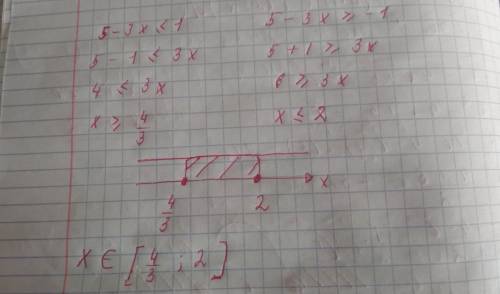 5 - 3x ≤ 1
5 - 1 ≤ 3x
4 ≤ 3x
x ≥ 4/3
5 - 3x ≥ -1
5 + 1 ≥ 3x
6 ≥ 3x
x ≤ 2
4/3 2 x
x ∈ [4/3 ; 2]